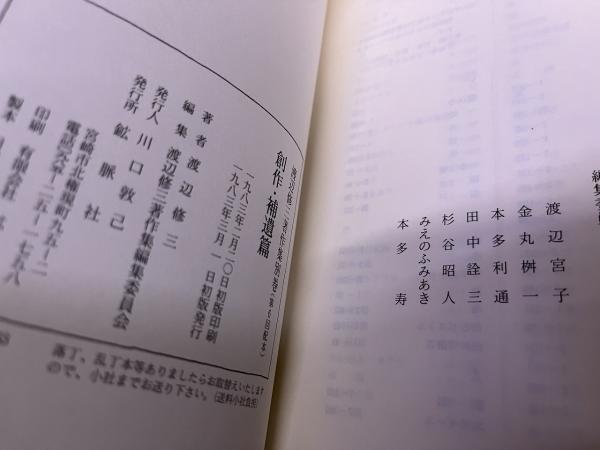 渡辺宮子
金丸桝一
本多利通
田中詮三
杉谷昭人
みえのふみあき
本多寿
渡辺修三著作集別巻(第6回配本)
創作・補遺篇
一九八三年二月二〇日初版印刷
一九八三年三月一日初版発行
著者 渡辺修三
編集 渡辺修三著作集編集委員会
発行人 川口敦己
発行所 鉱脈社
宮崎市北権現町九五ー二
電話〇九八五ー二五ー一七五八
印刷 有限会社
製本
落丁、乱丁本等ありましたらお取替えいたします
ので、小社までお送り下さい。(送料小社負担)